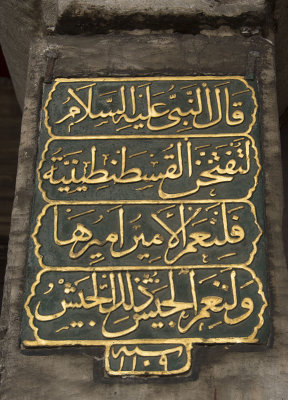 قال النبي عليه السلام
لتفتحن القسطنطينية
فلنعم الامير اميرها
ولنعم الجيش ذلك الجيش
سنه